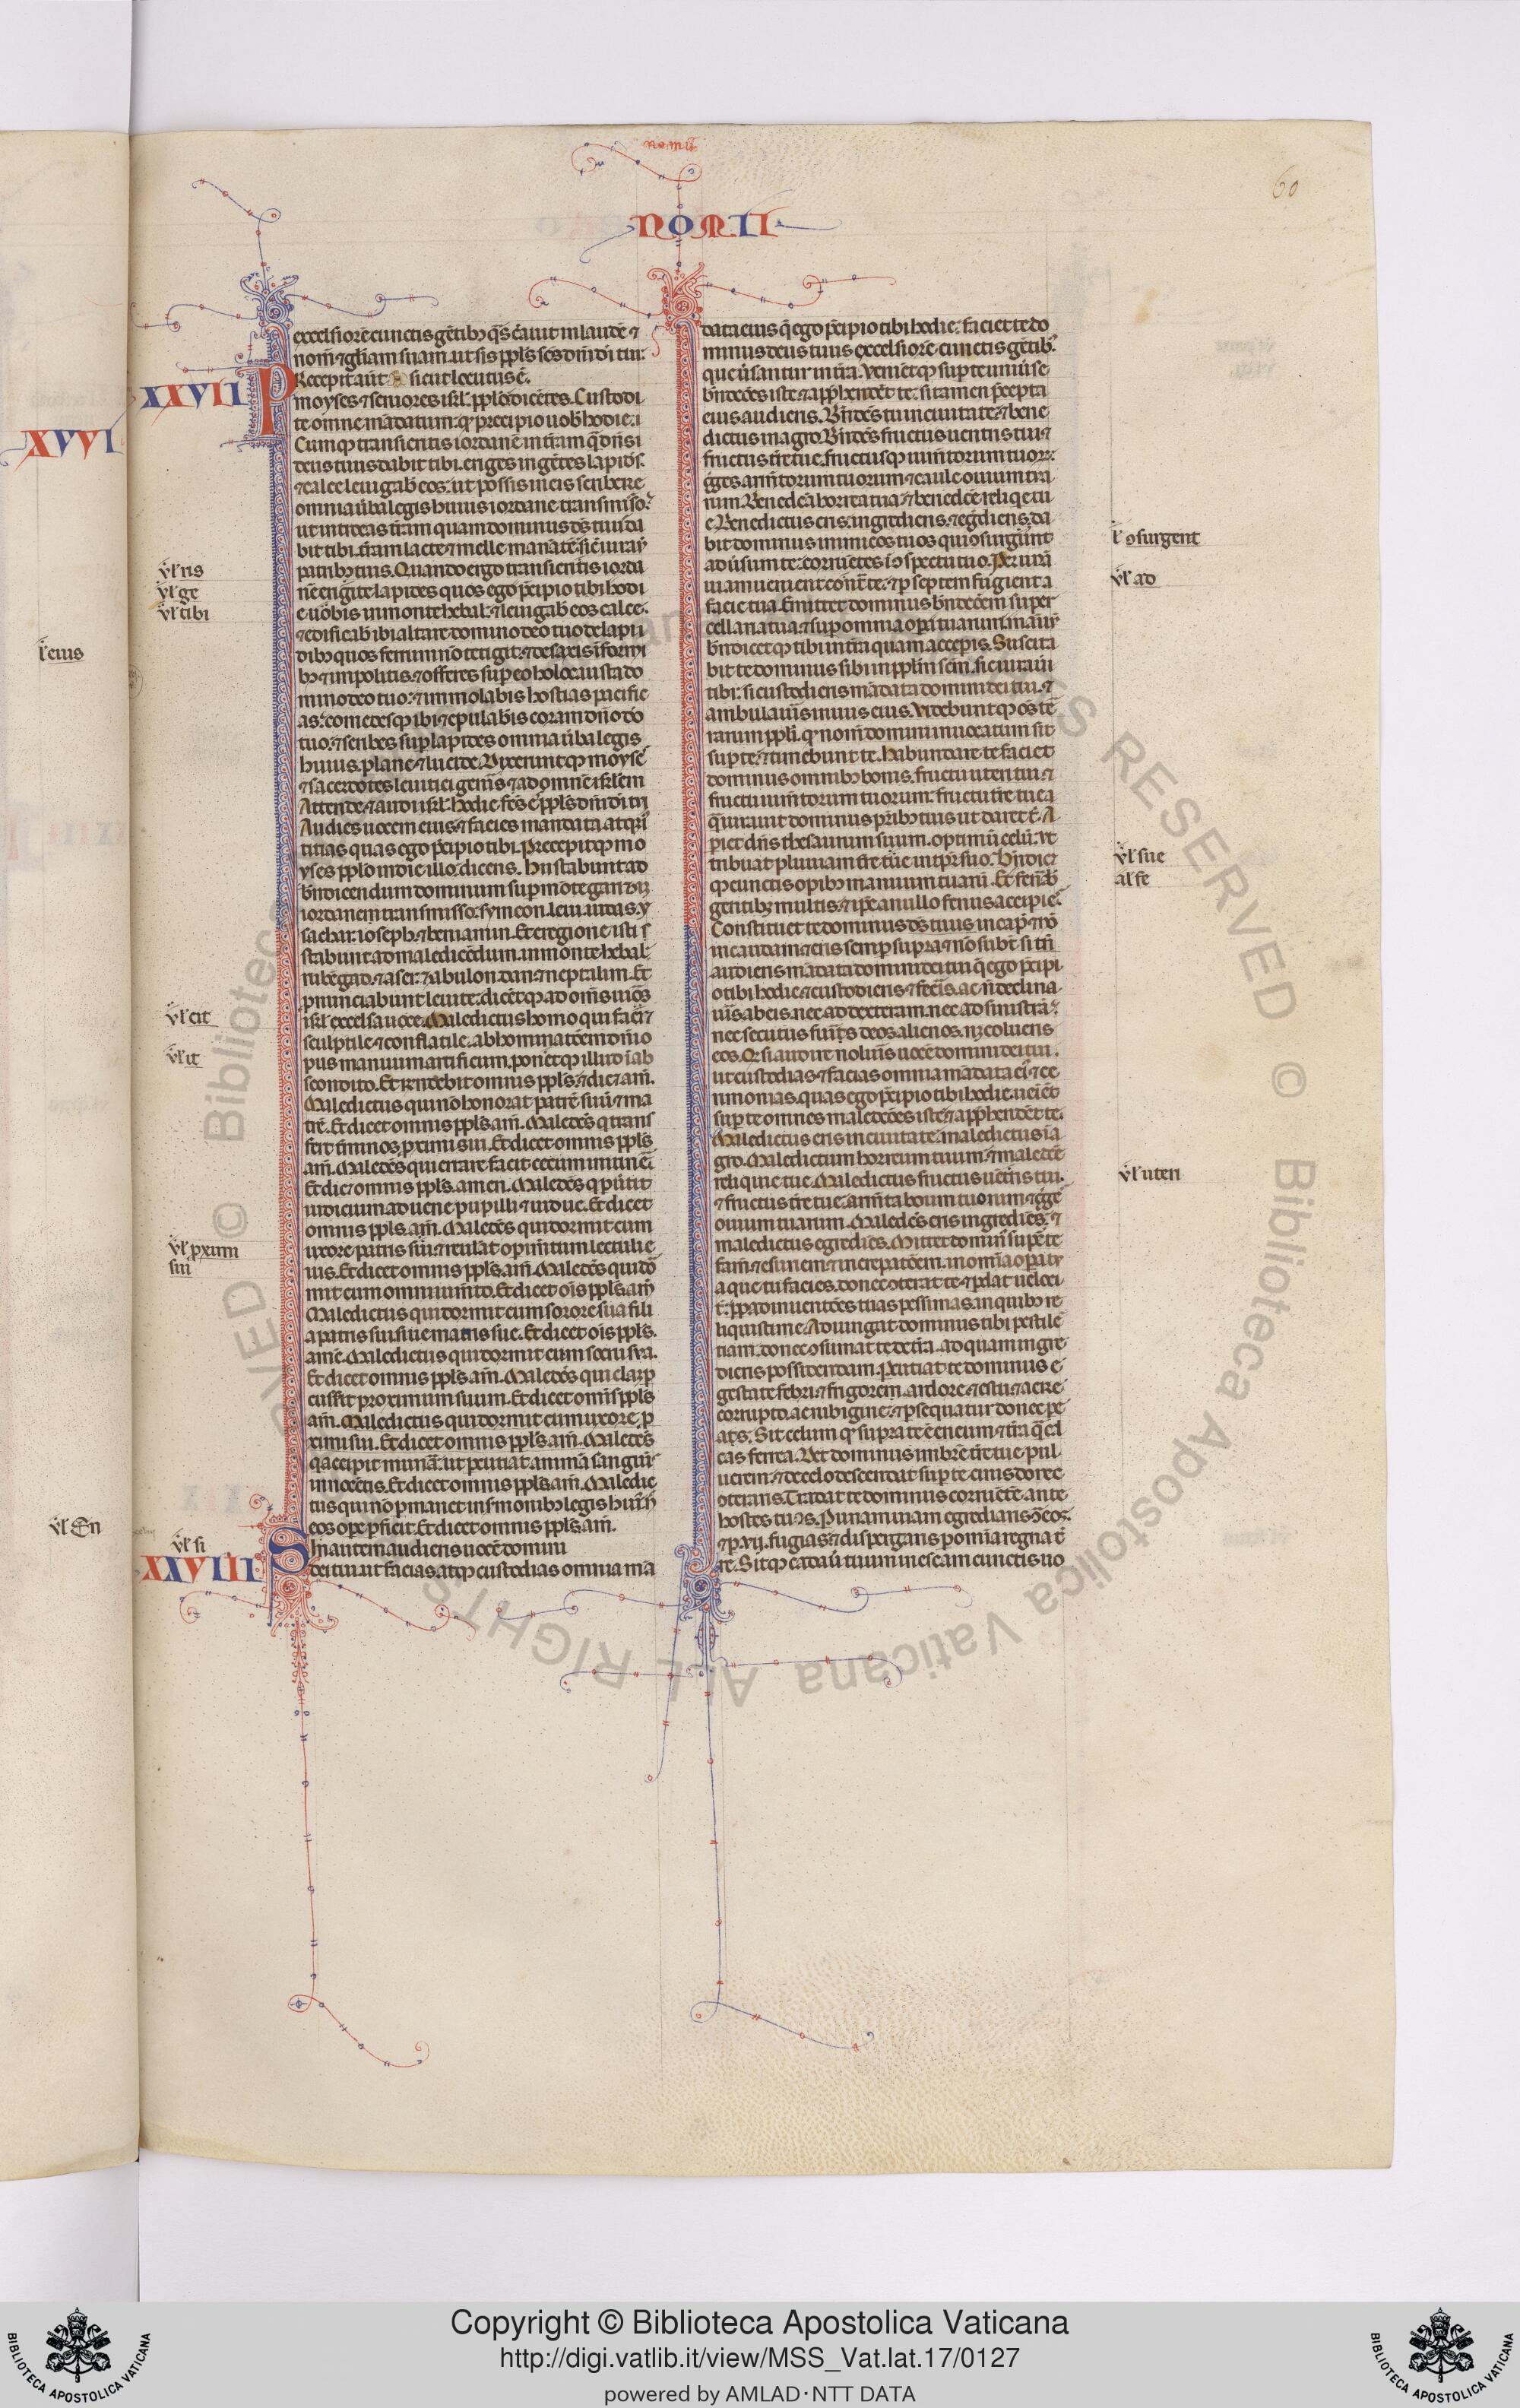 nomii
60
NOMII
excelsiorē cunctis gētibꝫ q̄s c̄auit in laudē ⁊
nom̄ ⁊ gl̄iam suam. ut sis ppl̄s sc̄s dn̄i di tui:
XXVII
Recepit aūt sicut locutus ē.
moyses ⁊ seniores isrl̓ pplo dicētes. Custodi
te omne mādatum. qꝫ precipio uob̄ hodie. i
Cumqꝫ transieritis iordanē in tr̄am q̄ dn̄s
deus tuus dabit tibi. eriges ingētes lapid̓s.
⁊ calce leuigab̄ eos. ut possis in eis scribere
omnia ūba legis huius iordane transmisso.
ut intreas tr̄am quam dominus dē tuꝰ da
bit tibi. tr̄am lacte ⁊ melle manātē. sic̄ iurauit
patribꝫ tuis. Quando ergo transieritis iorda
nē erigite lapides quos ego p̄cipio tibi hodi
e uobis in monte hebal. ⁊ leuigab̄ eos calce.
⁊ edificab̄ ibi altare domino deo tuo de lapi
dibꝫ quos ferrum nō tetigit. ⁊ de saxis īformi
bꝫ ⁊ impolitis. ⁊ offeres sup eo holocausta do
mino deo tuo: ⁊ immolabis hostias pacific
as. comedesqꝫ ibi ⁊ epulab̄is coram dn̄o dō
tuo. ⁊ scribes sup lapides omnia ūba legis
huius. plane ⁊ lucide. Dixeruntqꝫ moyses
⁊ sacerdotes leuitici gen̄is ad omnē isrl̓em
Attende ⁊ audi isrl̓. hodie fc̄s ē ppl̄s dn̄i di tui
Audies uocem eius ⁊ facies mandata atqꝫ iꝰ
titias quas ego p̄cipio tibi. Precepitqꝫ mo
yses pplo in die illo. dicens. Hii stabunt ad
bn̄dicendum dominum sup mōte garizim
iordanem transmisso. symeon. leui. iudas. y
sachar. ioseph. ⁊ beniamin. Et e regione isti s
stabunt ad maledicēdum. in monte hebal.
rubē. gad. ⁊ aser. ⁊ zabulon. dan. ⁊ neptalim. Et
pnunciabunt leuite. dicētqꝫ ad om̄s uiros
isrl̓ excelsa uoce. Maledictus homo qui facit
sculptile ⁊ conflatile. abhominatōem dn̄i o
pus manuum artificum. ponetqꝫ illud in ab
scondito. Et rn̄debit omnis ppl̄s. ⁊ dicet am̄.
Maledictus qui nō honorat patrē suū ⁊ ma
trē. Et dicet omnis ppl̄s am̄. Maledc̄s q̄ trans
fert t̄minos pximi sui. Et dicet omnis ppl̄s
am̄. Maledc̄s qui errare facit cecum in itinē
Et dicet omnis ppl̄s. amen. Maledc̄s q̄ puertit
iudicium aduene. pupilli ⁊ uidue. Et dicet
omnis ppl̄s. am̄. Maledc̄s qui dormit cum
uxore patris sui. ⁊ reuelat opim̄tum lectuli e
ius. Et dicet omnis ppl̄s. am̄. Maledc̄s qui dor
mit cum omni ium̄to. Et dicet oīs ppl̄s am̄
Maledictus qui dormit cum sorore sua fili
a patris sui. siue matris sue. Et dicet oīs ppl̄s.
amē. Maledictus qui dormit cum socru sua.
Et dicet omnis ppl̄s. am̄. Maledc̄s qui clam p
cussit proximum suum. Et dicet omīs ppl̄s
am̄. Maledictus qui dormit cum uxore p
ximi sui. Et dicet omnis ppl̄s. am̄. Maledc̄s
q̄ accipit munā. ut pcutiat animā sanguīs
innocētis. Et dicet omnis ppl̄s am̄. Maledic
tus qui nō pmanet in sermonibꝫ legis huiꝰ. n̄
eos ope pficit. Et dicet omnis ppl̄s am̄.
XXVIII
Sin autem audieris uocē domini
dei tui. ut facias atqꝫ custodias omnia mā
data eius q̄ ego p̄cipio tibi hodie. faciet te do
minus deus tuus excelsiorē cunctis gētibꝫ.
que ūsantur in tr̄a. Venietqꝫ sup te uniuse
bn̄dccōes iste ⁊ apphendēt te. si tamen p̄cepta
eius audieris. Bn̄dc̄s tu in ciuitate. ⁊ bene
dictus in agro. Bn̄dc̄s fructus uentris tui ⁊
fructus tr̄e tue. fructusqꝫ ium̄torum tuorꝝ.
greges arm̄torum tuorum ⁊ caule ouium tua
rum. Benedc̄a horrea tua. ⁊ benedc̄e reliqe tu
e. Benedictus eris ingrediens. ⁊ eg̓diens. da
bit dominus inimicos tuos qui osurgunt
aduersum te. corruētes ī ospectu tuo. Per unā
uiam uenient cont̄ te. ⁊ p septem fugient a
facie tua. Emittet dominus bn̄dccōem super
cellaria tua. ⁊ sup omnia opa manuum tuaꝝ
bn̄dicetqꝫ tibi in tr̄a quam accepis. Suscita
bit te dominus sibi in ppl̄m sc̄m. sic̄ iurauit
tibi. si custodieris mādata domini dei tui. ⁊
ambulaueris in uiis eius. Videbuntqꝫ om̄s t̄
rarum ppli. qꝫ nom̄ domini inuocatum sit
sup te. ⁊ timebunt te. Habundare te faciet
dominus omnibꝫ bonis. fructu uteri tui. ⁊
fructu ium̄torum tuorum. fructu tr̄e tue. q
uā iurauit dominus pr̄ibꝫ tuis ut daret t̄. A
piet dn̄s thesaurum suum. optimū celū. ut
tribuat pluuiam tr̄e tue in tpr̄ suo. Bn̄dicet
qꝫ cunctis opibꝫ manuum tuarū. Et fen̄ab̄
gentibꝫ multis. ⁊ ipe a nullo fenus accipies.
Constituet te dominus dē tuus in caput ⁊ nō
in caudam. ⁊ eris semp supra ⁊ nō subt̄. si tn̄
audieris mādata domini dei tui q̄ ego p̄cipi
o tibi hodie ⁊ custodieris ⁊ fec̄is. ac n̄ declina
ūis ab eis. nec ad dexteram. nec ad sinistrā.
nec secutus fueris deos alienos. neqꝫ colueris
eos. Qꝫ si audire nolueris uocē domini dei tui.
ut custodias ⁊ facias omnia mādata eiꝰ ⁊ ce
rimonias. quas ego p̄cipio tibi hodie. ueniēt
sup te omnes maledccōes iste. ⁊ apphendēt te.
Maledictus eris in ciuitate. maledictus in a
gro. Maledictum horreum tuum. ⁊ maledc̄e
reliquie tue. Maledictus fructus uentris tui.
⁊ fructus tr̄e tue. arm̄ta boum tuorum ⁊ g̓ge
ouium tuarum. Maledc̄s eris ingrediēs. ⁊
maledictus egrediēs. Mittet domin̄ sup te
fam̄ ⁊ esuriem ⁊ increpatōem. in omīa opa tu
a que tu facies. donec oterat te ⁊ pdat ueloci
t̄. ppt adinuentōes tuas pessimas. in quibꝫ re
liquisti me. Adiungat dominus tibi pestilē
tiam. donec osumat te de tr̄a. ad quam ingre
dieris possidendam. Percutiat te dominus e
gestate. febri. ⁊ frigorem. ardore. ⁊ estu. ⁊ aere
corrupto. ac rubigine. ⁊ psequatur donec pe
as. Sit celum qꝫ supra te ē eneum. ⁊ tr̄a q̄ cal
cas ferrea. Det dominus imbrē tr̄e tue pul
uerem. ⁊ de celo descendat sup te cinis. donec
oteraris. Tradat te dominus corruētē ante
hostes tuos. P unam uiam egrediaris ꝯ eos.
⁊ p vij. fugias. ⁊ dispergaris p omīa regna t̄
re. Sitqꝫ cadaū tuum in escam cunctis uo
XVVI
ul̓ ris
ul̓ ge
ul̓ tibi
l̓ eius
ul̓ cit
ul̓ it
ul̓ pximi
sui
ul̓ En
ul̓ si
l̓ osurgent
ul̓ ad
ul̓ sue
al̓ fe
ul̓ uten
© Biblioteca Apostolica Vaticana ALL RIGHTS RESERVED
Copyright © Biblioteca Apostolica Vaticana
http://digi.vatlib.it/view/MSS_Vat.lat.17/0127
powered by AMLAD·NTT DATA
BIBLIOTECA APOSTOLICA VATICANA
BIBLIOTECA APOSTOLICA VATICANA